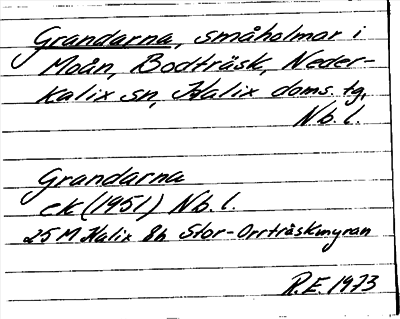 Grandarna, småholmar i
Moån, Bodträsk, Neder-
kalix sn, Kalix doms. tg,
Nb. l.
Grandarna
ek (1951) Nb. l.
25 M Kalix 8h Stor-Orrträskmyran
R.E. 1973